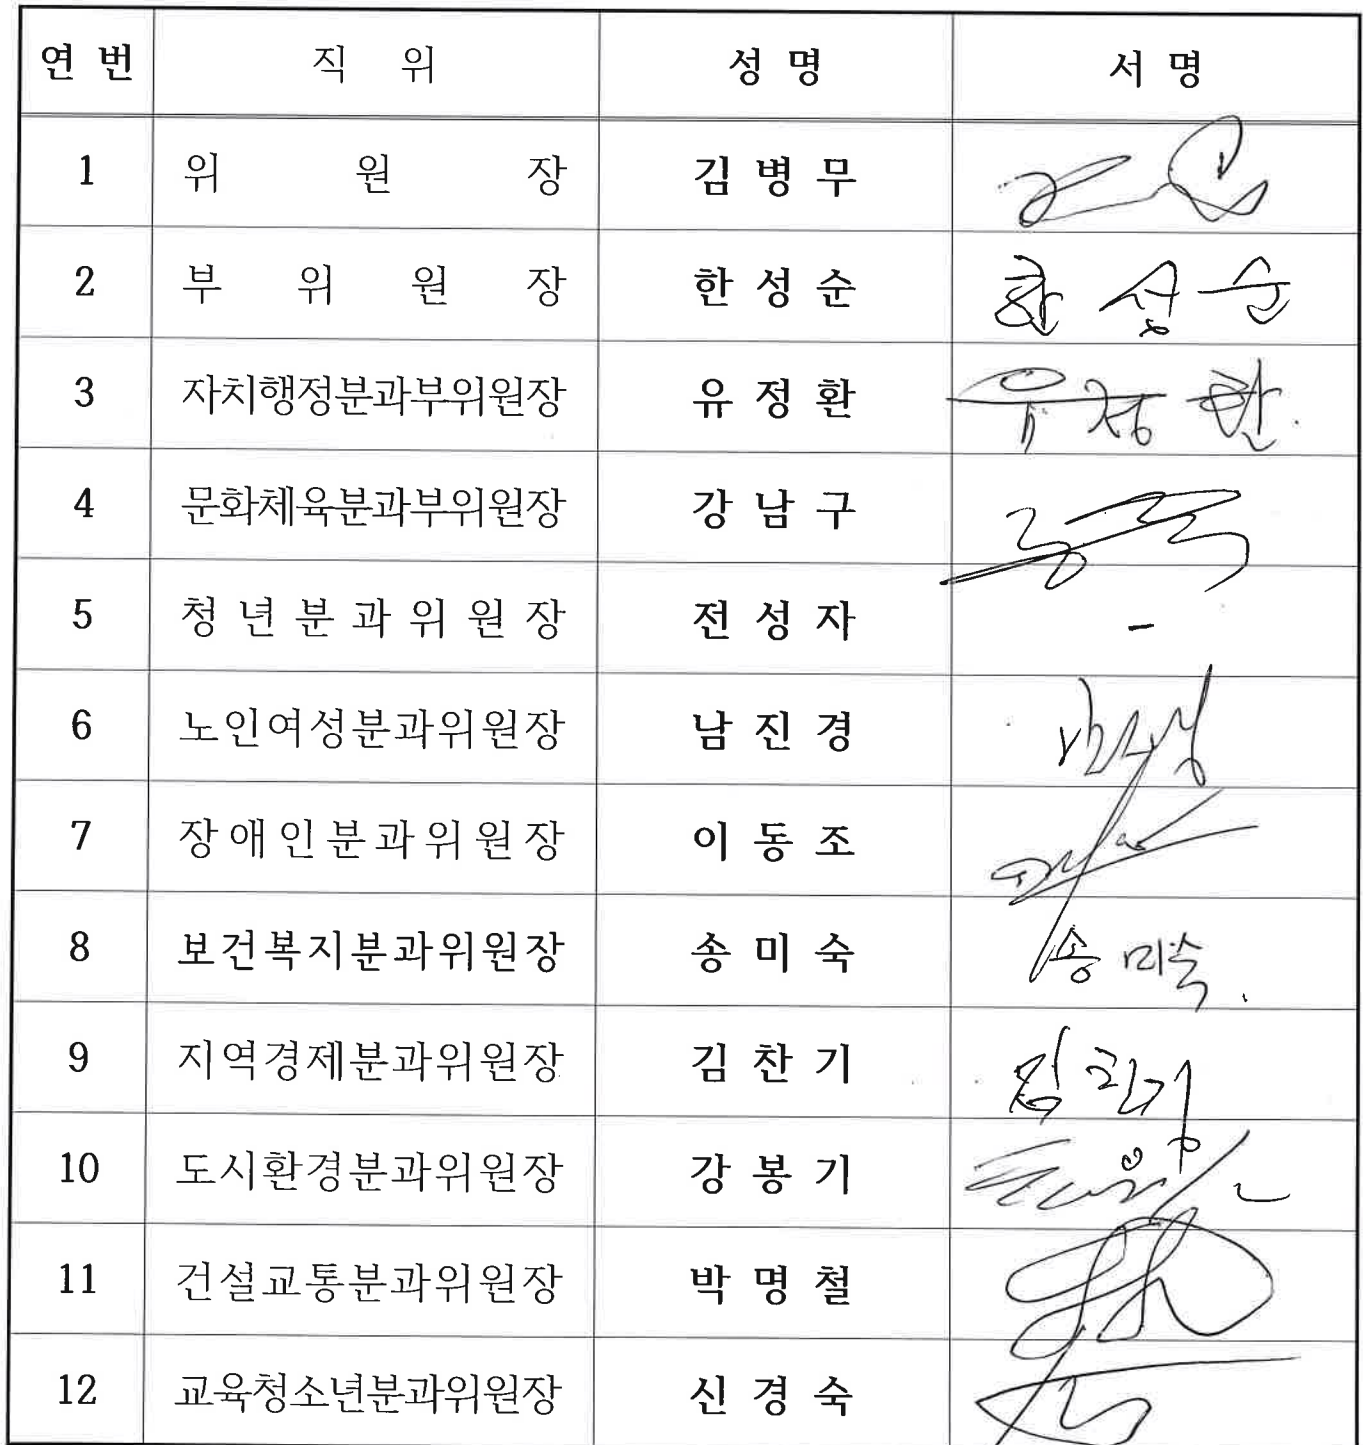 연 번 직 위 성 명 서 명
1 위 원 장 김 병 무
2 부 위 원 장 한 성 순 한 성 순
3 자치행정분과부위원장 유 정 환 유 정 환
4 문화체육분과부위원장 강 남 구
5 청 년 분 과 위 원 장 전 성 자 -
6 노인여성분과위원장 남 진 경
7 장애인분과위원장 이 동 조
8 보건복지분과위원장 송 미 숙 송 미숙
9 지역경제분과위원장 김 찬 기 김 찬기
10 도시환경분과위원장 강 봉 기
11 건설교통분과위원장 박 명 철
12 교육청소년분과위원장 신 경 숙